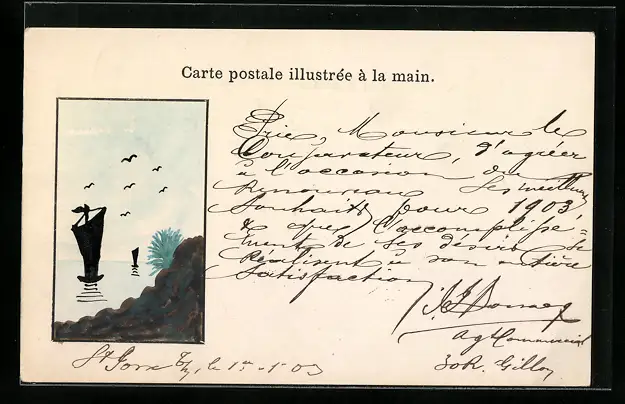 Carte postale illustrée à la main.
Prie, Monsieur le
Conservateur, d'agréer
à l'occasion du
Renouveau Ses meilleurs
Souhaits pour 1903,
& que l'accomplisse=
ment de ses désirs se
Réalisent à son entière
Satisfaction
Agt Commercial
30 R. Gillon
le 1er - 1 - 03